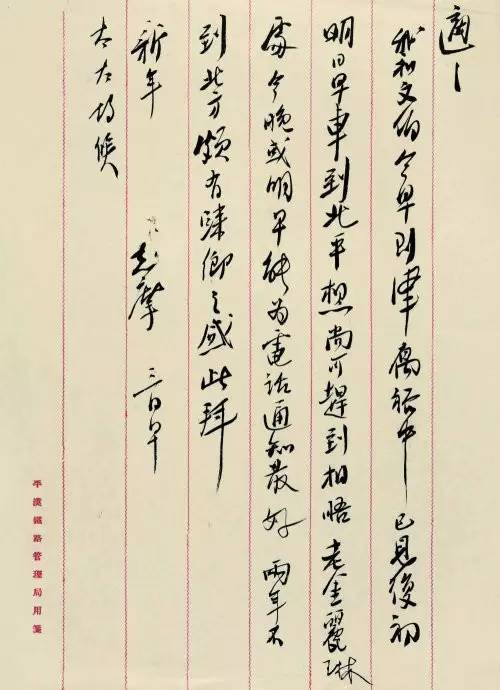 適之
我和文伯今早到津寓裕中已見復初
明日早車到北平想尚可趕到相晤老金麗琳
處今晚或明早能為電話通知最好兩年不
到北方頗有歸鄉之感此拜
新年 志摩 三日早
太太均候
平漢鐵路管理局用箋